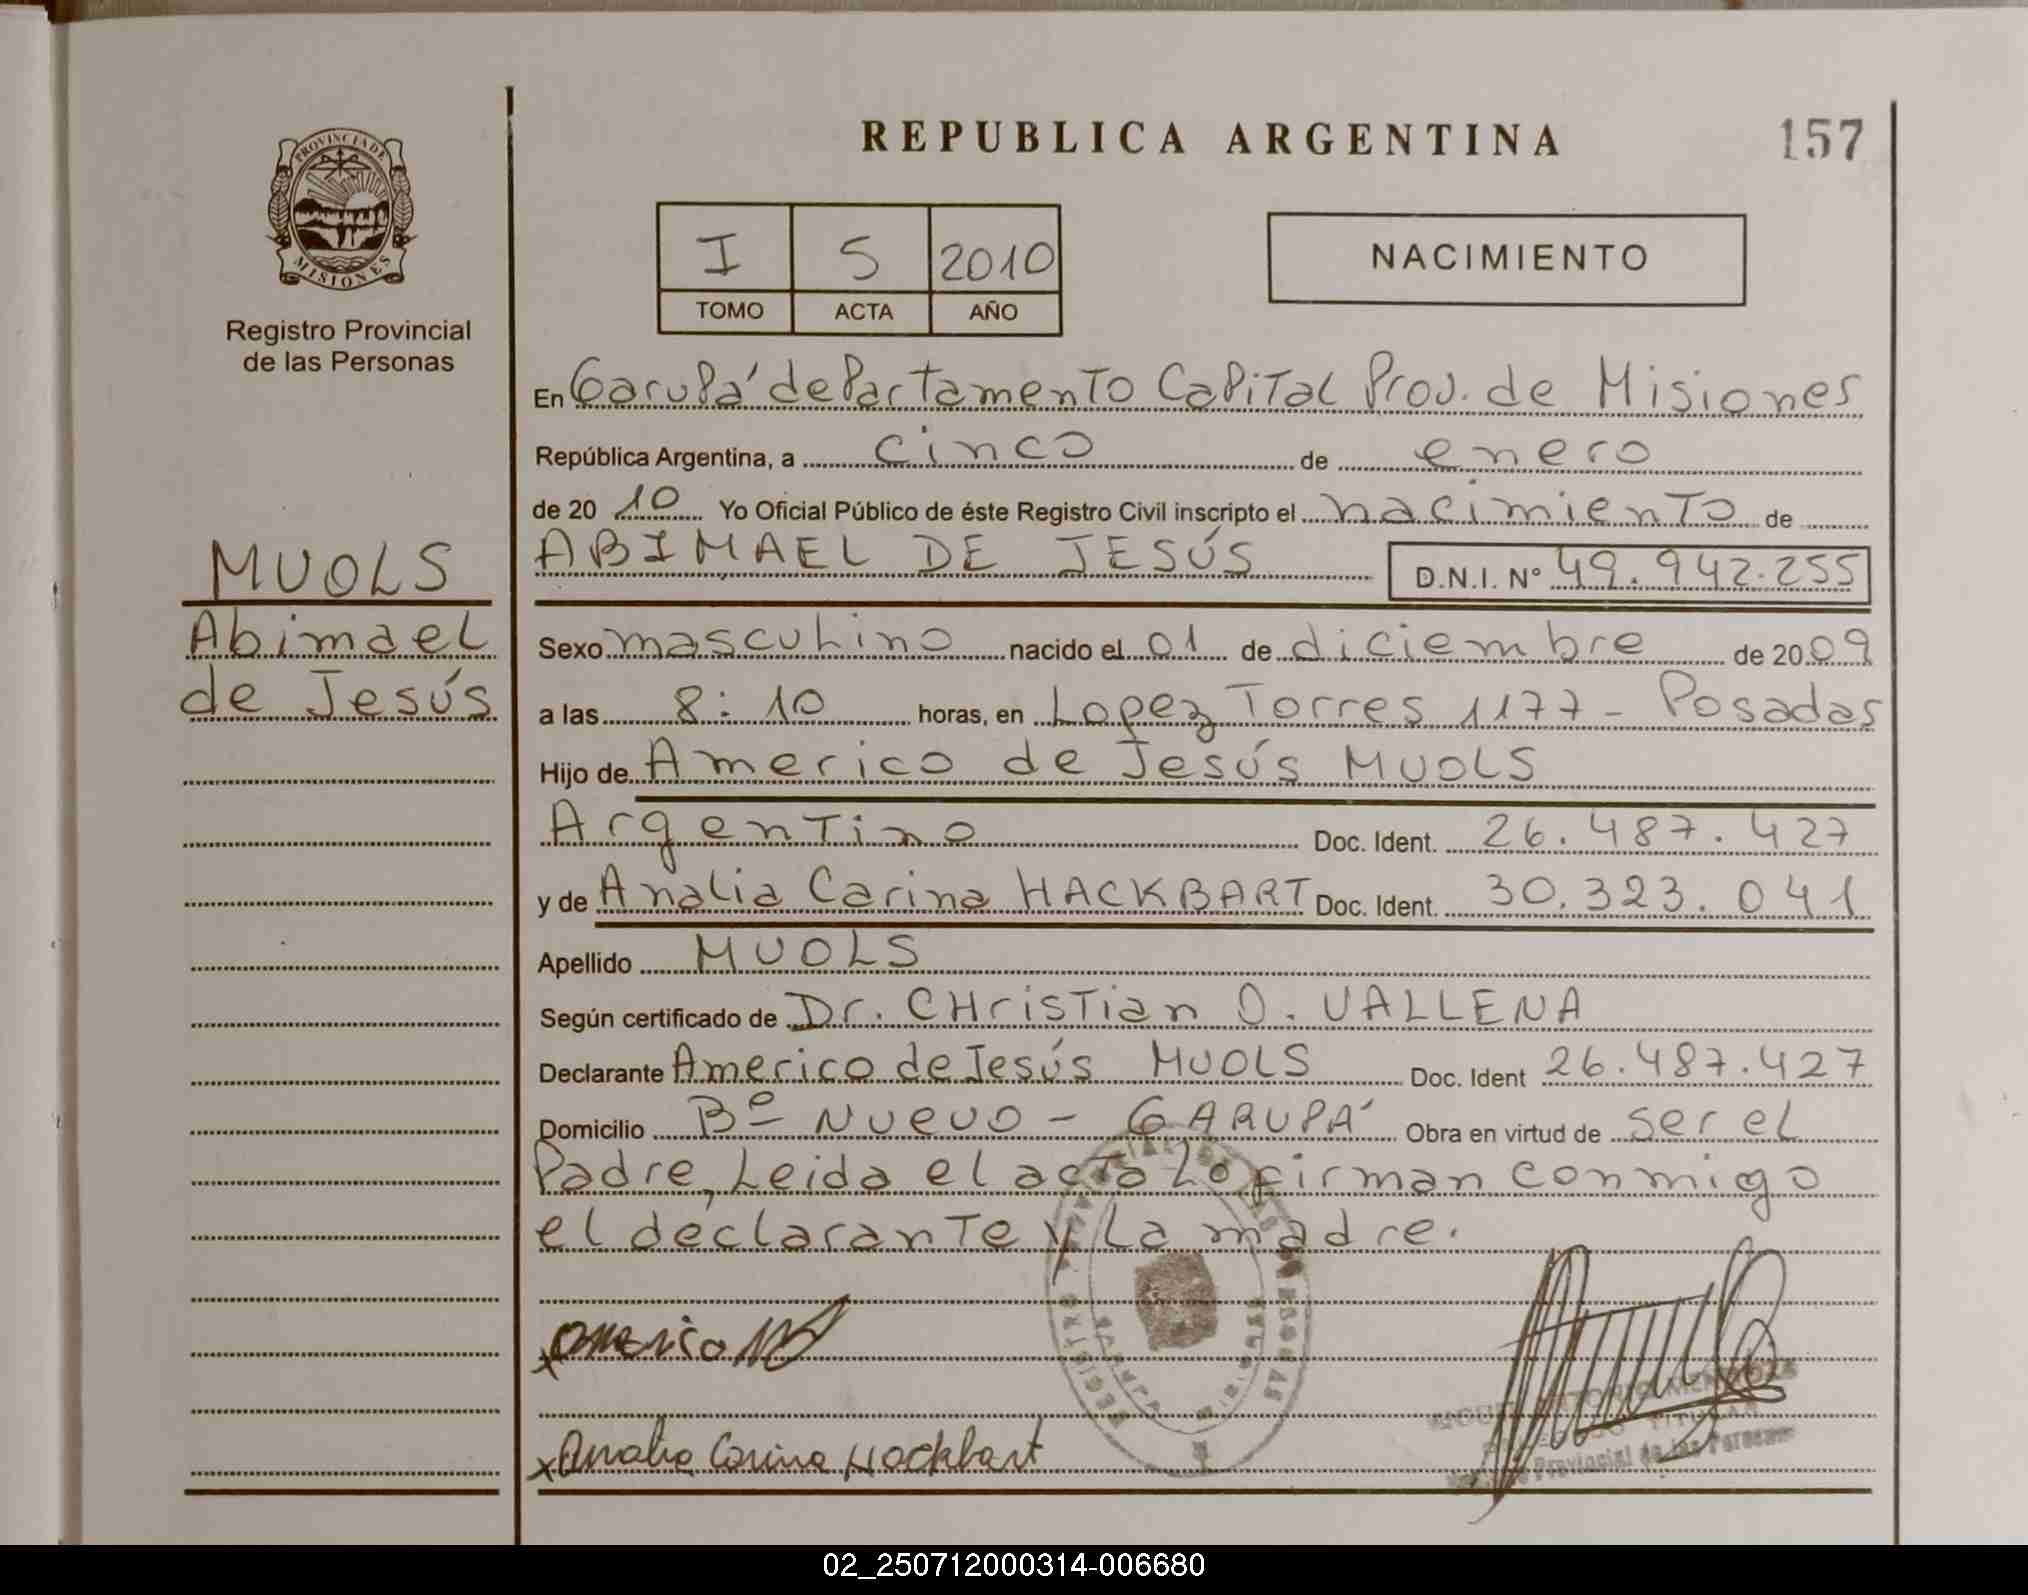 REPUBLICA ARGENTINA
157
PROVINCIA DE
MISIONES
Registro Provincial
de las Personas
I 5 2010
TOMO ACTA AÑO
NACIMIENTO
En Garupá departamento Capital Prov. de Misiones
República Argentina, a cinco de enero
de 2010 Yo Oficial Público de éste Registro Civil inscripto el nacimiento de
ABIMAEL DE JESÚS D.N.I. Nº 49.942.255
MUOLS
Abimael
de Jesús
Sexo masculino nacido el 01 de diciembre de 2009
a las 8:10 horas, en Lopez Torres 1177 - Posadas
Hijo de Americo de Jesús MUOLS
Argentino Doc. Ident. 26.487.427
y de Analia Carina HACKBART Doc. Ident. 30.323.041
Apellido MUOLS
Según certificado de Dr. CHristian O. VALLENA
Declarante Americo de Jesús MUOLS Doc. Ident 26.487.427
Domicilio Bº NUEVO - GARUPÁ Obra en virtud de ser el
Padre, Leida el acta Lo firman conmigo
el declarante y La madre.
x Americo
x Analia Carina Hackbart
TITULAR
Provincial de las Personas
02_250712000314-006680